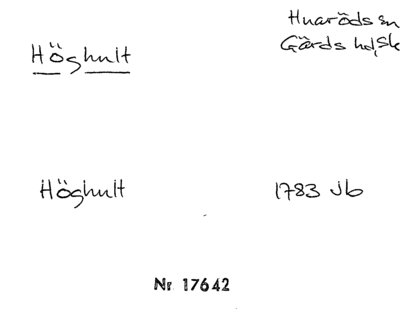 Höghult
Huaröds sn
Gärds hd, Sk
Höghult
1783 Jb
Nr 17642